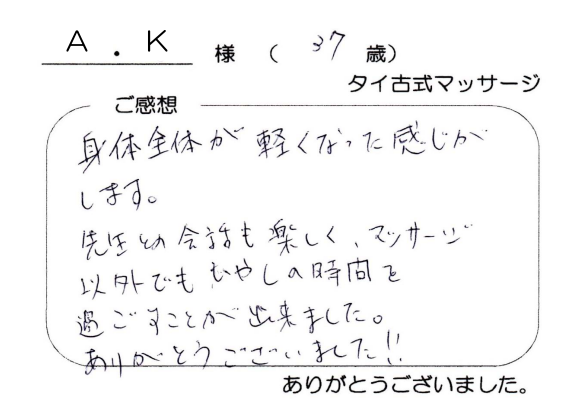 A．K 様 （ 37 歳）
タイ古式マッサージ
ご感想
身体全体が軽くなった感じが
します。
先生との会話も楽しく、マッサージ
以外でもいやしの時間を
過ごすことが出来ました。
ありがとうございました!!
ありがとうございました。